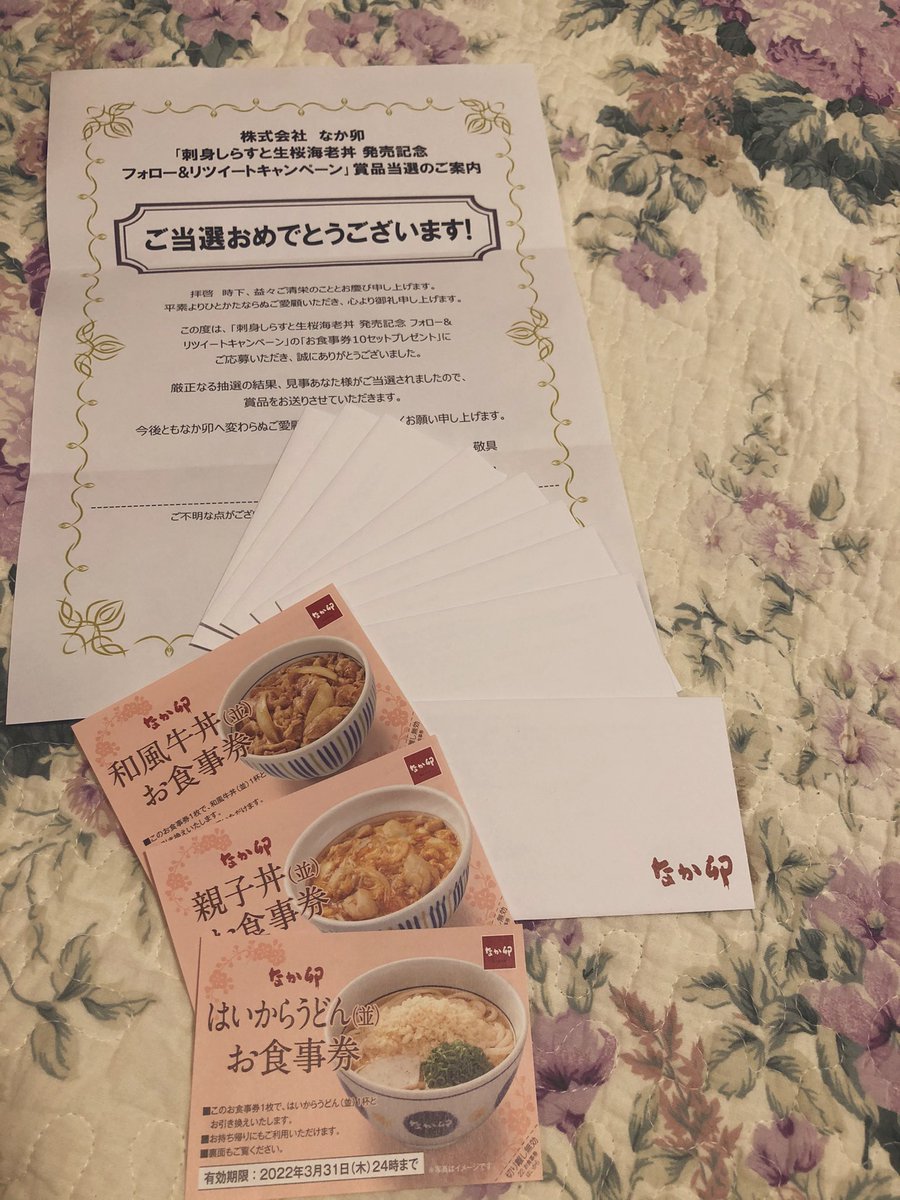 株式会社 なか卯
「刺身しらすと生桜海老丼 発売記念
フォロー&リツイートキャンペーン」賞品当選のご案内
ご当選おめでとうございます!
拝啓 時下、益々ご清栄のこととお慶び申し上げます。
平素よりひとかたならぬご愛顧いただき、心より御礼申し上げます。
この度は、「刺身しらすと生桜海老丼 発売記念 フォロー&
リツイートキャンペーン」の「お食事券10セットプレゼント」に
ご応募いただき、誠にありがとうございました。
厳正なる抽選の結果、見事あなた様がご当選されましたので、
賞品をお送りさせていただきます。
今後ともなか卯へ変わらぬご愛顧 お願い申し上げます。
敬具
ご不明な点がござ
なか卯
なか卯
和風牛丼(並)
お食事券
■このお食事券1枚で、和風牛丼(並)1杯と
お引き換えいたします。
なか卯
なか卯
親子丼(並)
お食事券
なか卯
なか卯
なか卯
はいからうどん(並)
お食事券
■このお食事券1枚で、はいからうどん(並)1杯と
お引き換えいたします。
■お持ち帰りにもご利用いただけます。
■裏面もご覧ください。
有効期限:2022年3月31日(木)24時まで
※写真はイメージです
切り離し無効
なか卯